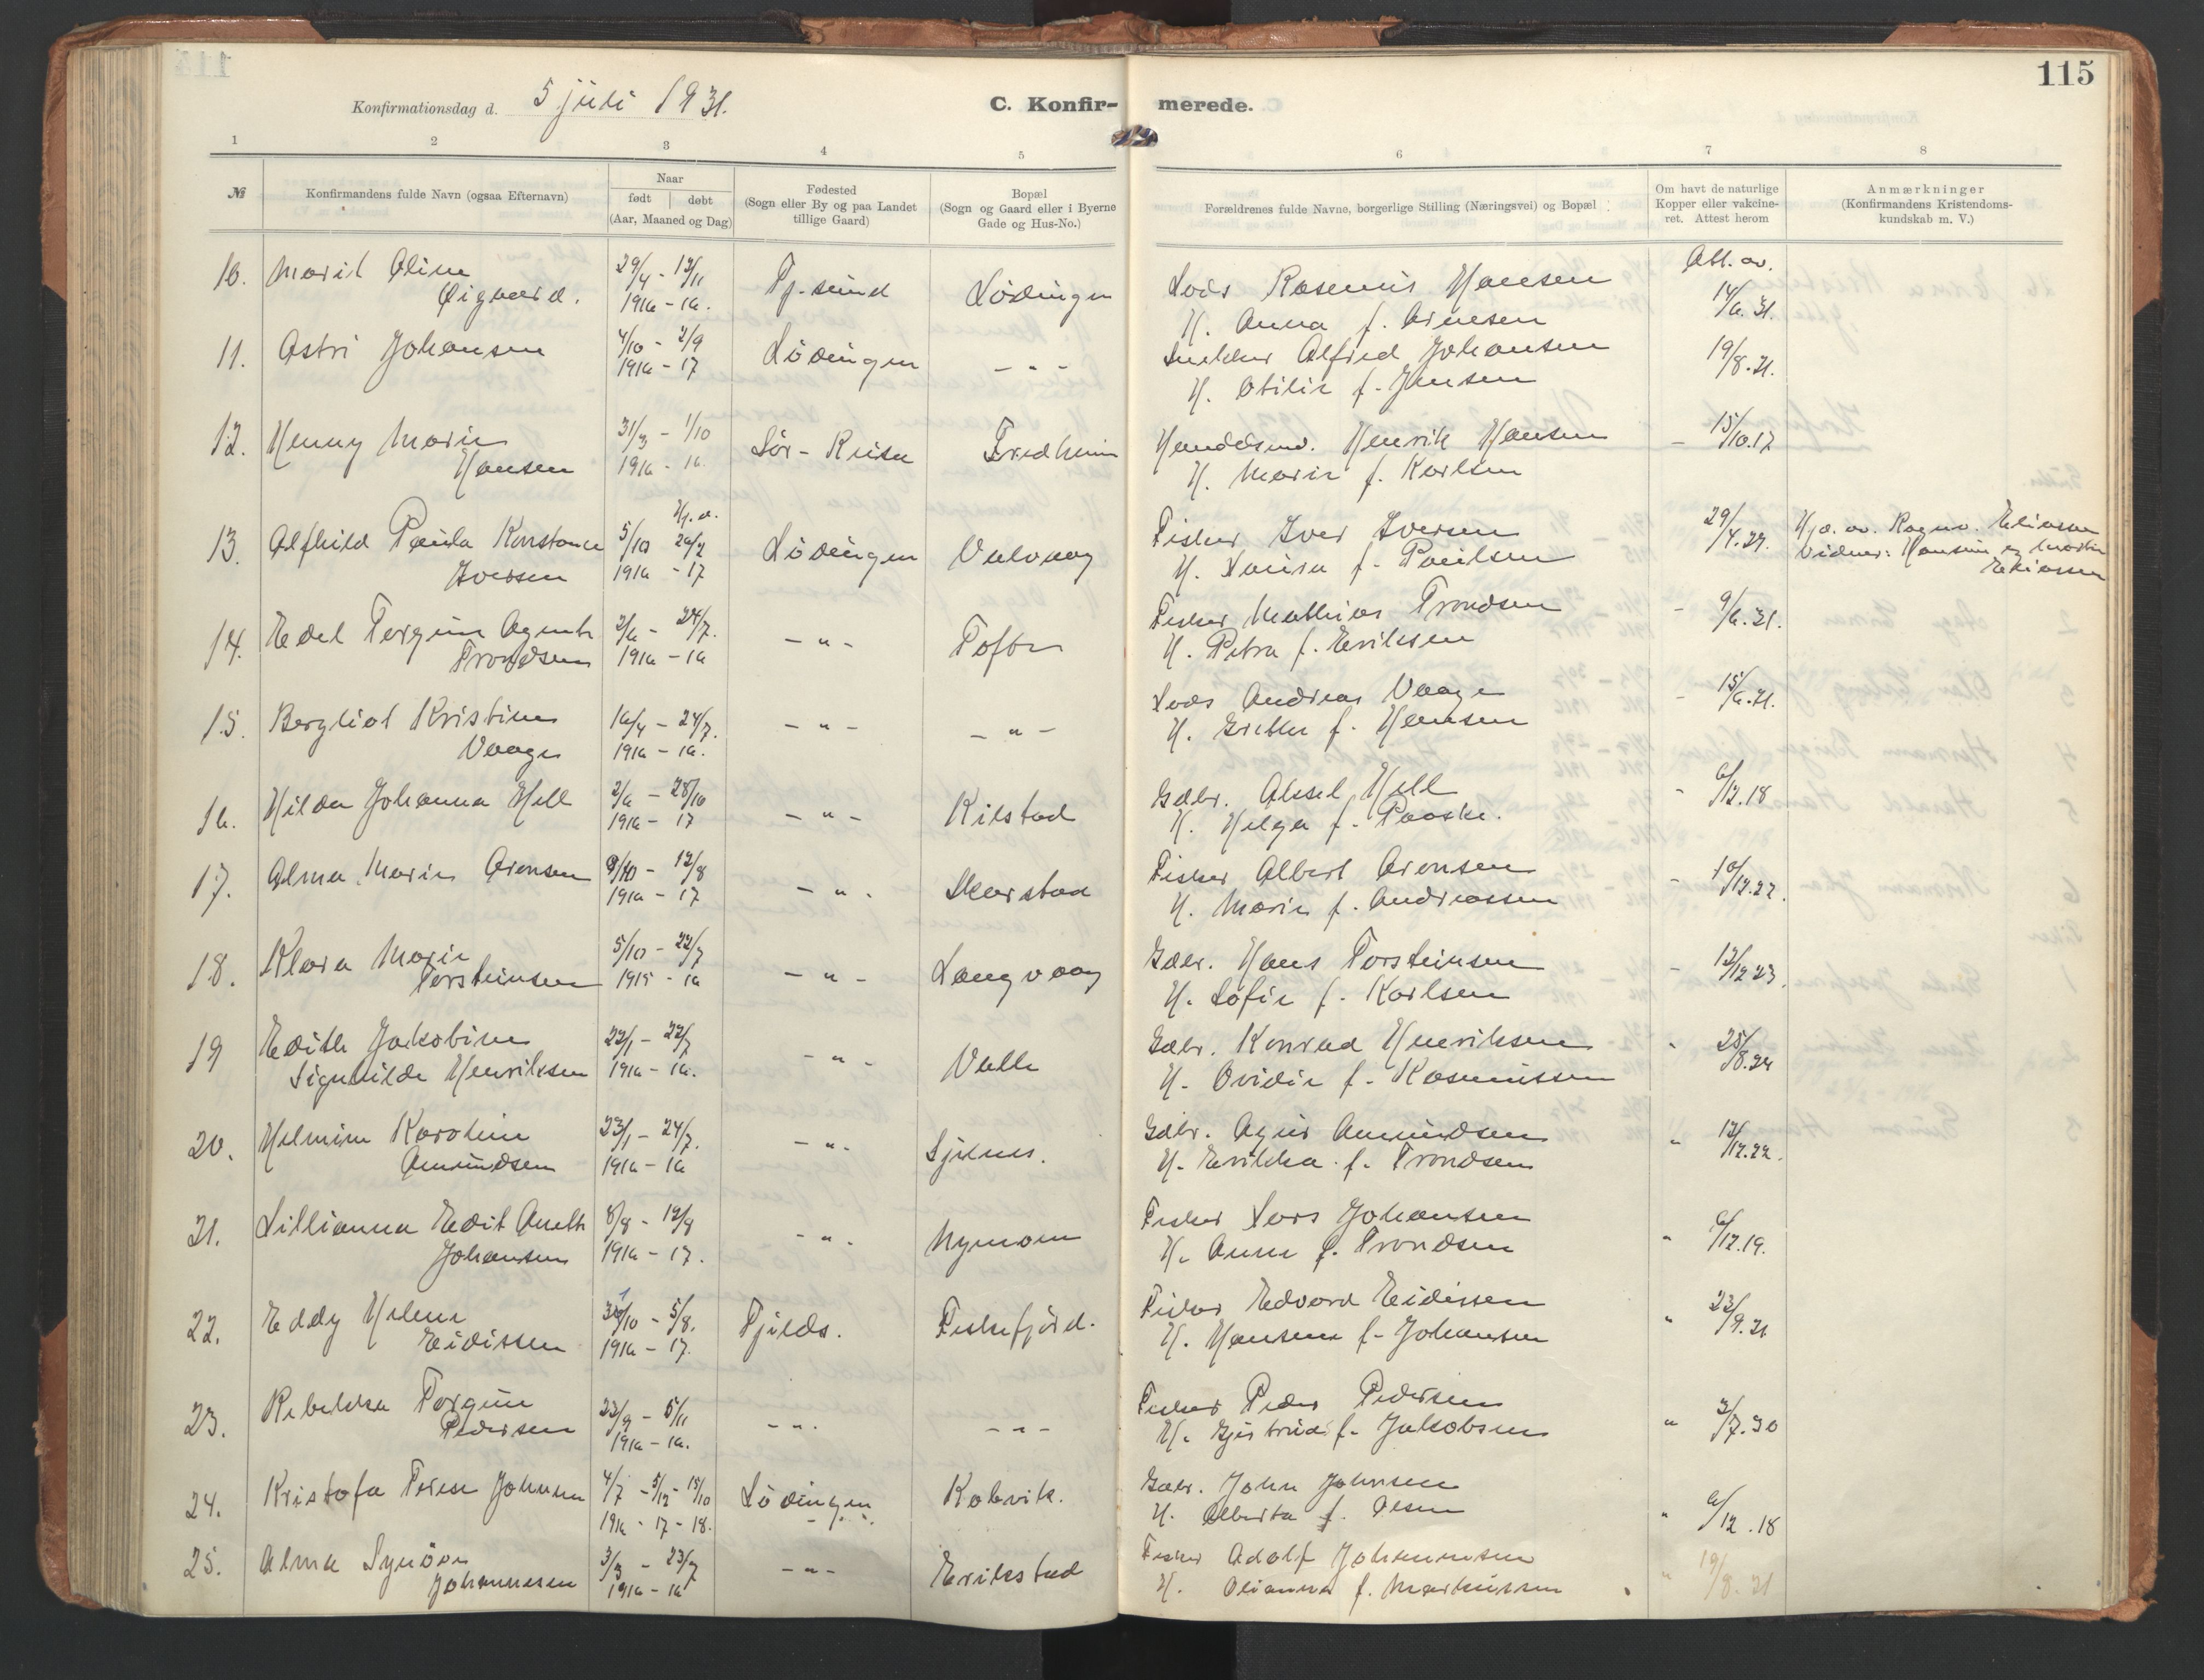 115
Konfirmationsdag d. 5 juli 1931.
C. Konfir- merede.
1 2 3 4 5 6 7 8
№
Konfirmandens fulde Navn (ogsaa Efternavn)
Naar
født døbt
(Aar, Maaned og Dag)
Fødested
(Sogn eller By og paa Landet
tillige Gaard)
Bopæl
(Sogn og Gaard eller i Byerne
Gade og Hus-No.)
Forældrenes fulde Navne, borgerlige Stilling (Næringsvei) og Bopæl
Om havt de naturlige
Kopper eller vakcine-
ret. Attest herom
Anmærkninger
(Konfirmandens Kristendoms-
kundskab m. V.)
10. Marit Oline 29/4 - 12/11 Tj.sund Lødingen Lods Rasmus Hansen Att. av.
Øigaard. 1916 - 16. H. Anna f. Arnesen 14/6.31.
11. Astri Johansen 4/10 - 2/9 Lødingen - " - Snekker Alfred Johansen 19/8.31.
1916 - 17 H. Otilie f. Jensen
12. Henny Marie 31/3 - 1/10 Sør-Reisa Fredheim Handelsmd. Henrik Hansen - 15/10.17
Hansen 1916 - 16. H. Marie f. Karlsen
13. Alfhild Paula Konstance 5/10 Lødingen Valvaag Fisker Iver Iversen 29/4.27. Hjd. av. Ragnv. Eliassen
Iversen 1916 - 17 H. Laura f. Paulsen Vidner: Hansine og Martin
Eliassen
14. Edel Torgun Agnete 2/6 - 24/7. - " - Tofta Fisker Mathias Trondsen - 9/6.31.
Trondsen 1916 - 16 H. Petra f. Eriksen
15. Bergliot Kristine 16/4 - 24/7. - " - - " - Lods Andreas Vaage - 15/6.31.
Vaage 1916 - 16. H. Grethe f. Hansen
16. Hilda Johanna Hell 2/6 - 28/10 - " - Kilstad Gdbr. Aksel Hell - 6/12.18
1916 - 17 H. Helga f. Paaske.
17. Alma Marie Arensen 9/10 - 12/8 - " - Skarstad Fisker Albert Arensen - 10/12.27.
1916 - 17 H. Marie f. Andreassen
18. Klara Marie 5/10 - 22/7 - " - Langvaag Gdbr. Hans Torsteinsen - 12/12 23.
Torsteinsen 1915 - 16 H. Sofie f. Karlsen
19 Edith Jakobine 22/1 - 22/7 - " - Valle Gdbr. Konrad Henriksen " 25/8.24
Signhilde Henriksen 1916 - 16. H. Ovidie f. Rasmussen
20. Helmine Karoline 23/1 - 24/7. - " - Sjånes. Gdbr. Agus Amundsen " 12/12.22.
Amundsen 1916 - 16 H. Erikka f. Trondsen
21. Lillianna Edit Anette 8/8 - 12/8 - " - Nymoen Fisker Lars Johansen " 6/12.19.
Johansen 1916 - 17. H. Anne f. Trondsen
22. Eddy Helene 31/10 - 5/8. Tjelds. Fiskefjord. Fisker Edvard Eidissen " 23/9.31
Eidissen 1916 - 17. H. Hansine f. Johansen
23. Rebekka Torgun 23/9 - 5/11 - " - - " - Fisker Peder Pedersen " 3/7.30
Pedersen 1916 - 16. H. Gjertrud f. Jakobsen
24. Kristofa Terese Johnsen 4/7 - 5/12 - 15/10 Lødingen Kobvik. Gdbr. John Johnsen
1916 - 17 - 18. H. Alberta f. Olsen " 6/12.18
25. Alma Synøve 3/3 - 23/7 - " - Erikstad Fisker Adolf Johannesen
Johannesen 1916 - 16 H. Olianna f. Markussen " 19/8.31